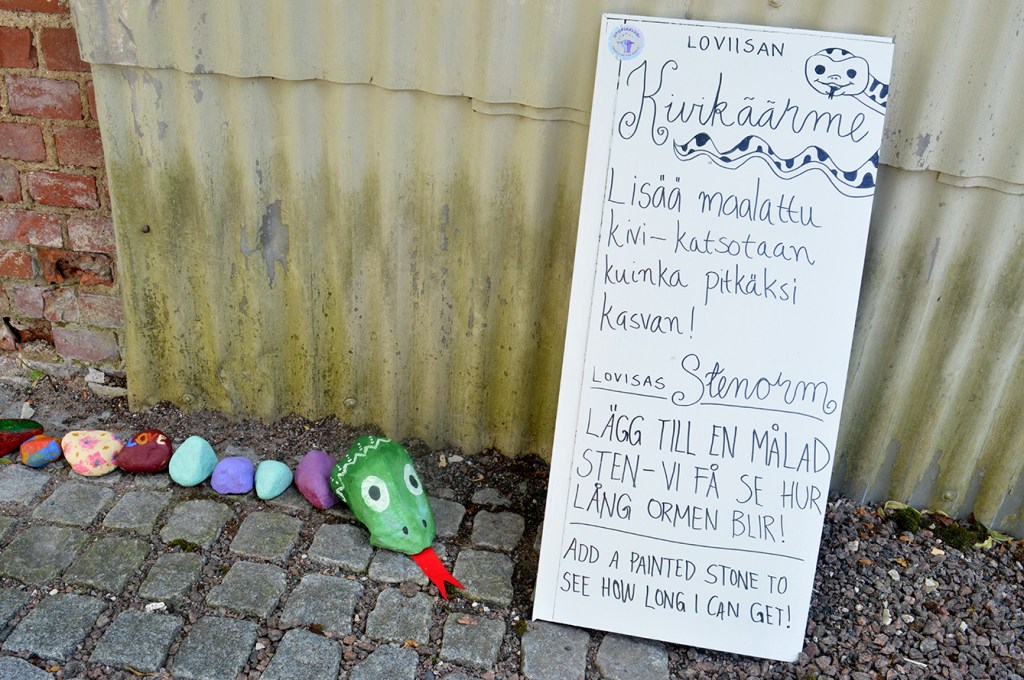 LOVIISAN
Kivikäärme
Lisää maalattu
kivi-katsotaan
kuinka pitkäksi
kasvan!
LOVISAS Stenorm
LÄGG TILL EN MÅLAD
STEN-VI FÅ SE HUR
LÅNG ORMEN BLIR!
ADD A PAINTED STONE TO
SEE HOW LONG I CAN GET!